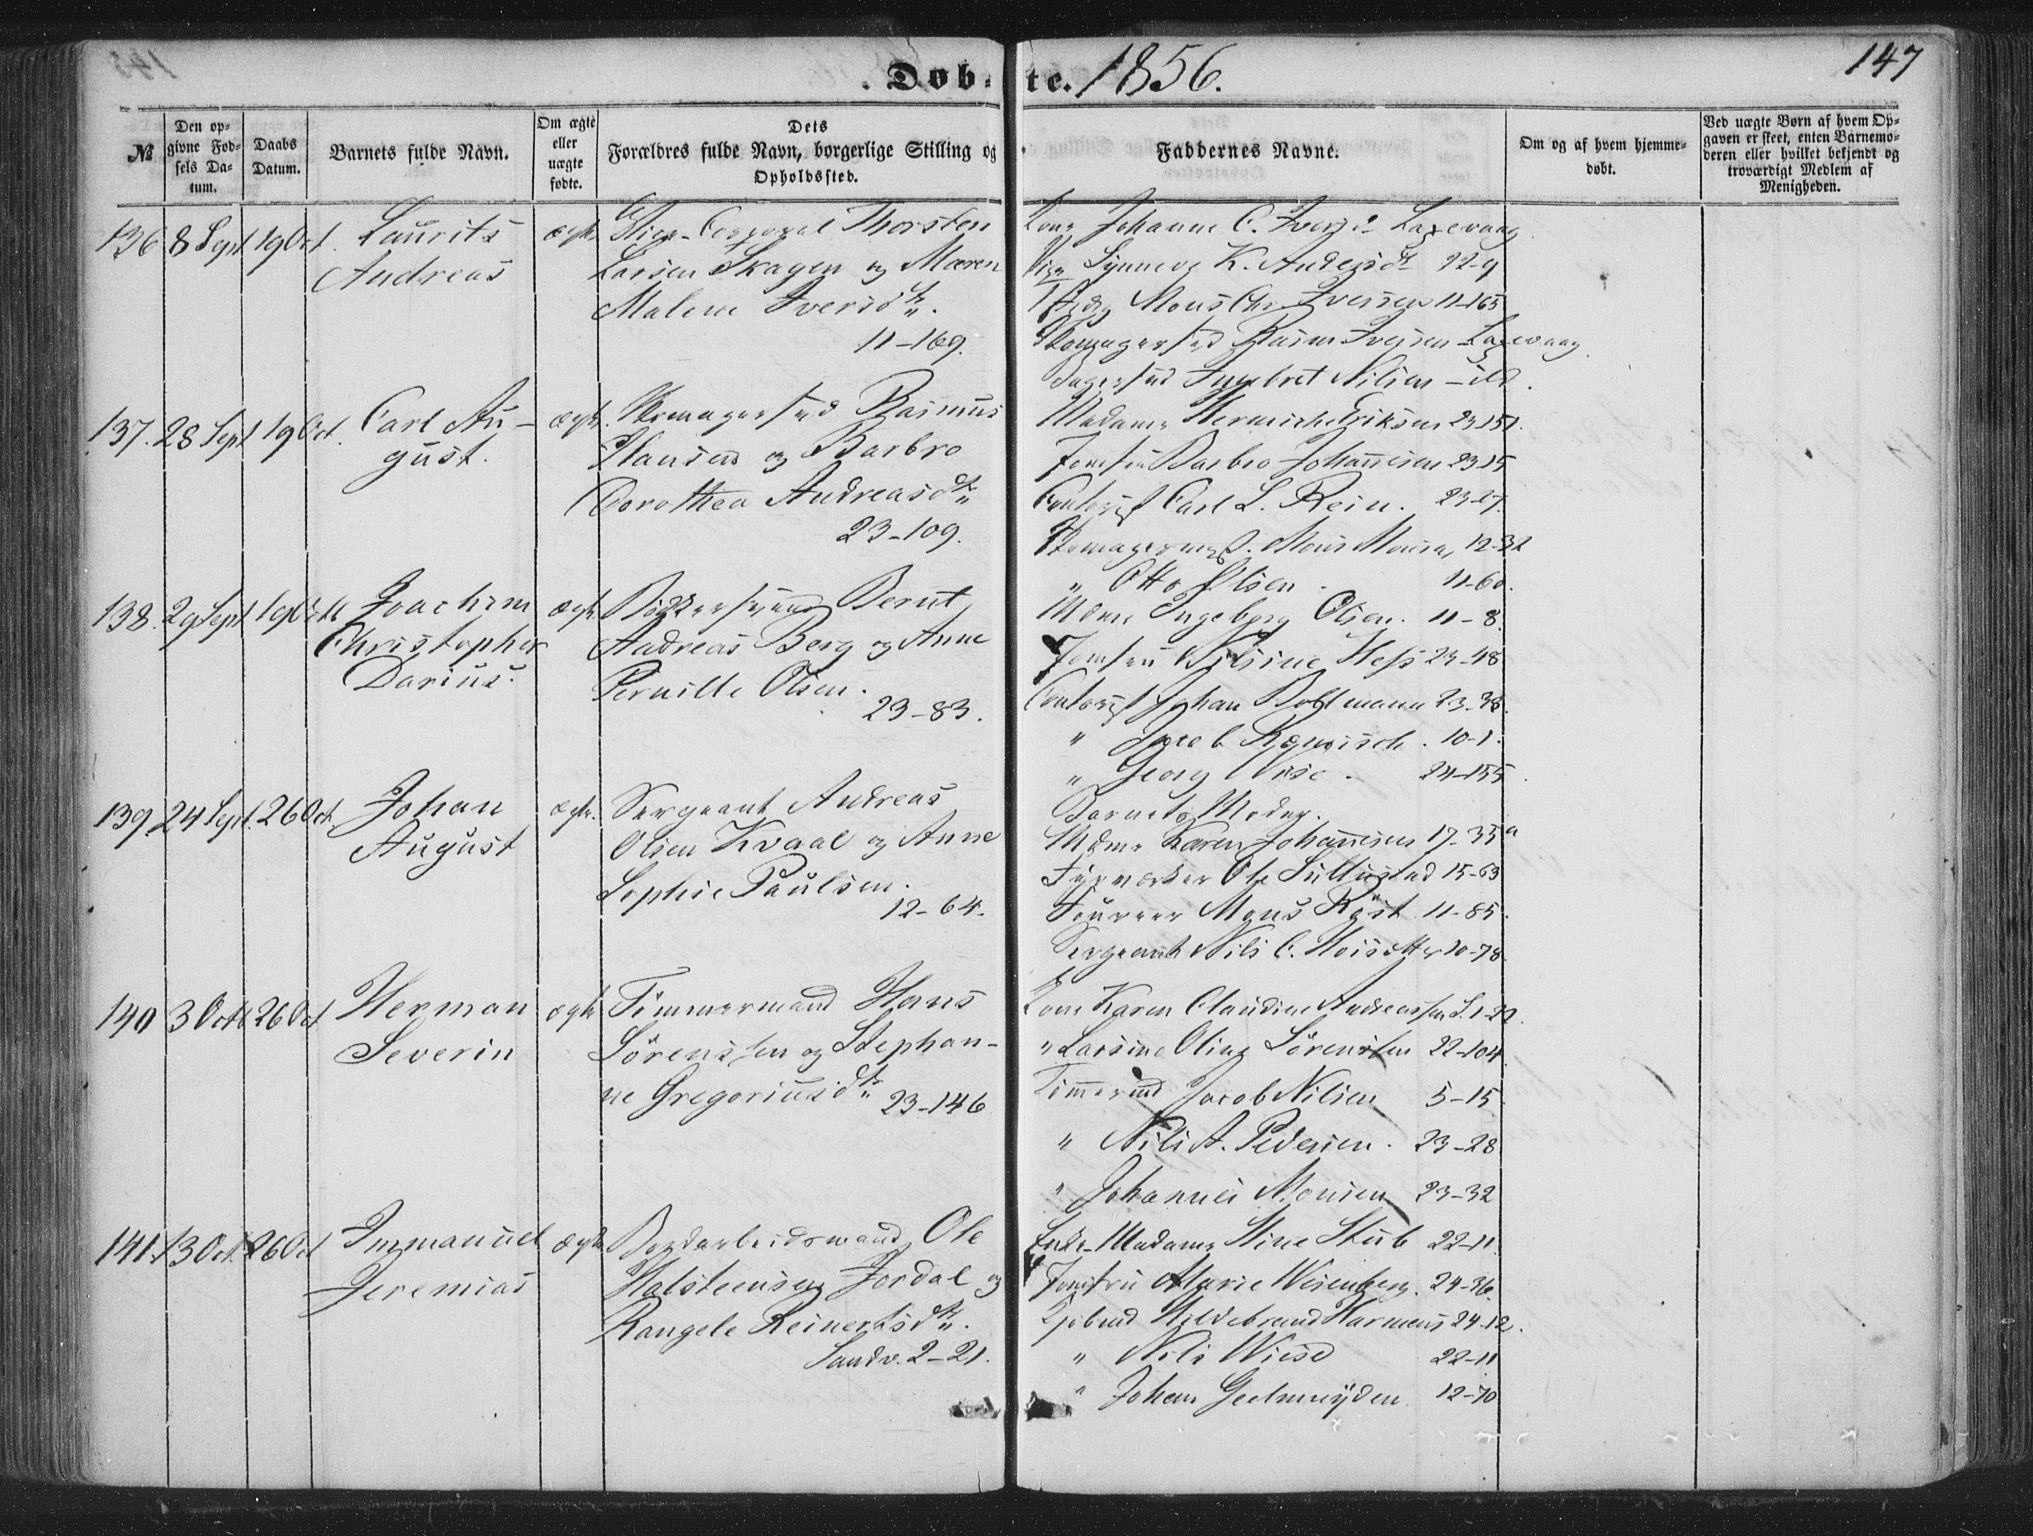 Døbte. 1856.
147
№
Den opgivne Fødsels Datum.
Daabs Datum.
Barnets fulde Navn.
Om ægte eller uægte fødte.
Dets Forældres fulde Navn, borgerlige Stilling og Opholdssted.
Faddernes Navne.
Om og af hvem hjemmedøbt.
Ved uægte Børn af hvem Opgaven er skeet, enten Barnemoderen eller hvilket bekjendt og troværdigt Medlem af Menigheden.
136 8 Sept 19 Oct. Laurits
Andreas
ægte
Corporal Thorsten
Larsen Skagen og Maren
Malene Iversd.
11-169.
Kone Johanne C. Laxevaag
Pige Synneve K. Andersdt 22-9
Mons Chr Iversen 11-165
Rasm Iversen Laxevaag
Ingebret Nilsen - ild.
137. 28 Sept 19 Oct. Carl Au-
gust.
ægte.
Skomagersvd Rasmus
Hansen og Barbro
Dorothea Andreasdtr
23-109.
Madame Eriksen 23-151.
Jomfru Barbro Johannesen 23-15
Contorist Carl L. Rein. 23-27.
Skomagermest. Mons Monsen, 12-32
" Otto Olsen 11-60.
138. 29 Sept 19 Oct Joachim
Christopher
Darius.
ægte
Bødkersvend Bernt
Andreas Berg og Anne
Pernille Olsen.
23-83.
Mdme Ingeborg Olsen. 11-8.
Jomfru Nilsine Hess 23-48
Contorist Johan Boltmann 23-38.
" Jacob 10-1.
" Georg Wise. 24-155.
139. 24 Sept. 26 Oct. Johan
August
ægte.
Sergeant Andreas
Olsen Kvaal og Anne
Sophie Paulsen.
12-64.
Barnets Moder.
Mdme Karen Johannesen 17-35a
Fyrværker Ole 15-63
Foureer Mons Røst 11-85.
Sergeant Nils C. 10-78
140 3 Octb 26 Oct Herman
Severin
ægte
Timmermand Hans
Sørenssen og Stephan-
ne Gregoriusdtr 23-146
Kone Karen Claudine Andreassen S.1-22.
" Larsine Oline Sørensen 22-104
Timmermd Jacob Nilsen 5-15
" Nils A. Pedersen. 23-28
" Johannes Monsen 23-32
141. 13 Oct. 26 Oct Immanuel
Jeremias
ægte
Bordarbeidsmand Ole
Halsteensen Jordal og
Rangele Reinertsdtr.
Sandv. 2-21.
Enke-Madame Stine Stub 22-11.
Jomfru Marie Wesenberg. 24-36.
Kjøbmd Hildebrand Harmens 24-12.
" Nils Wiese 22-11
" Johan Geelmuyden 12-70